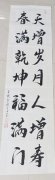 天增岁月人增寿
春满乾坤福满门